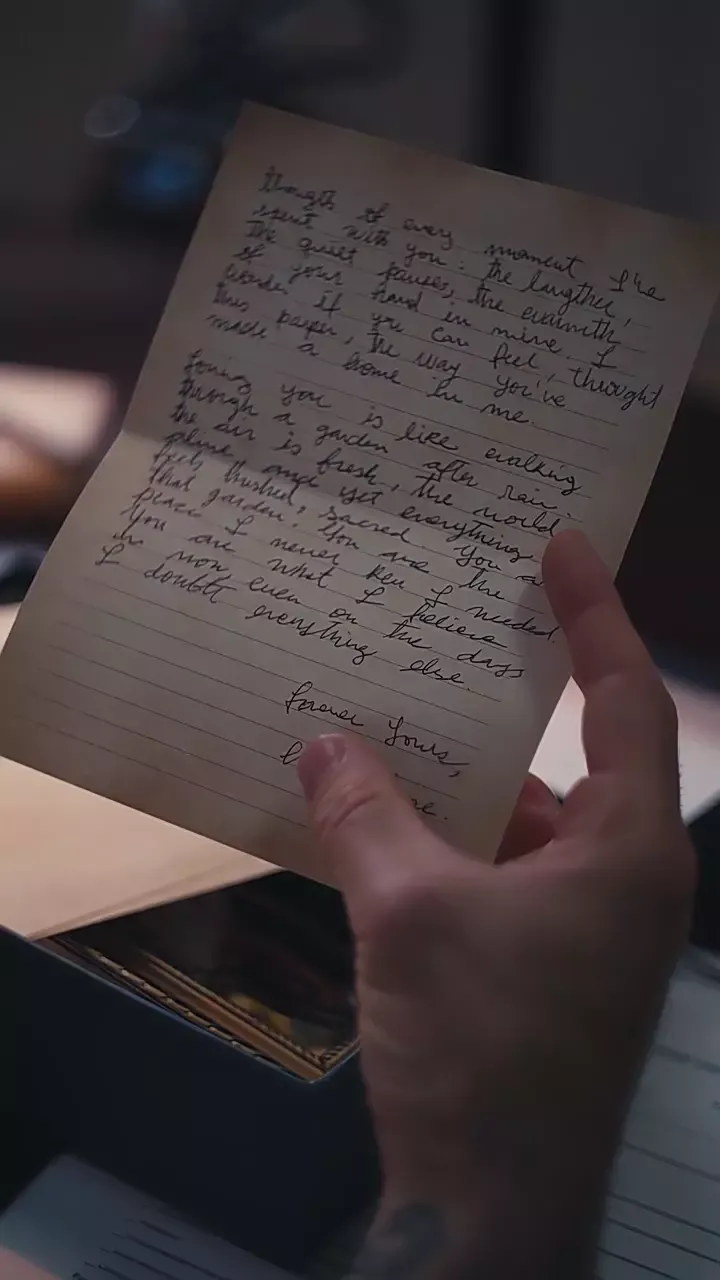 through of every moment I've
spent with you: the laugther,
the quiet pauses, the warmth
of your hand in mine. I
wonder if you can feel, throught
this paper, the way you've
made a home in me.
Loving you is like walking
through a garden after rain.
the air is fresh, the world
and yet everything
feels hushed, sacred. You a
that garden. You are the
peace I never I needed.
You are what I believe
in now even on the days
I doubt everything else.
forever Yours,